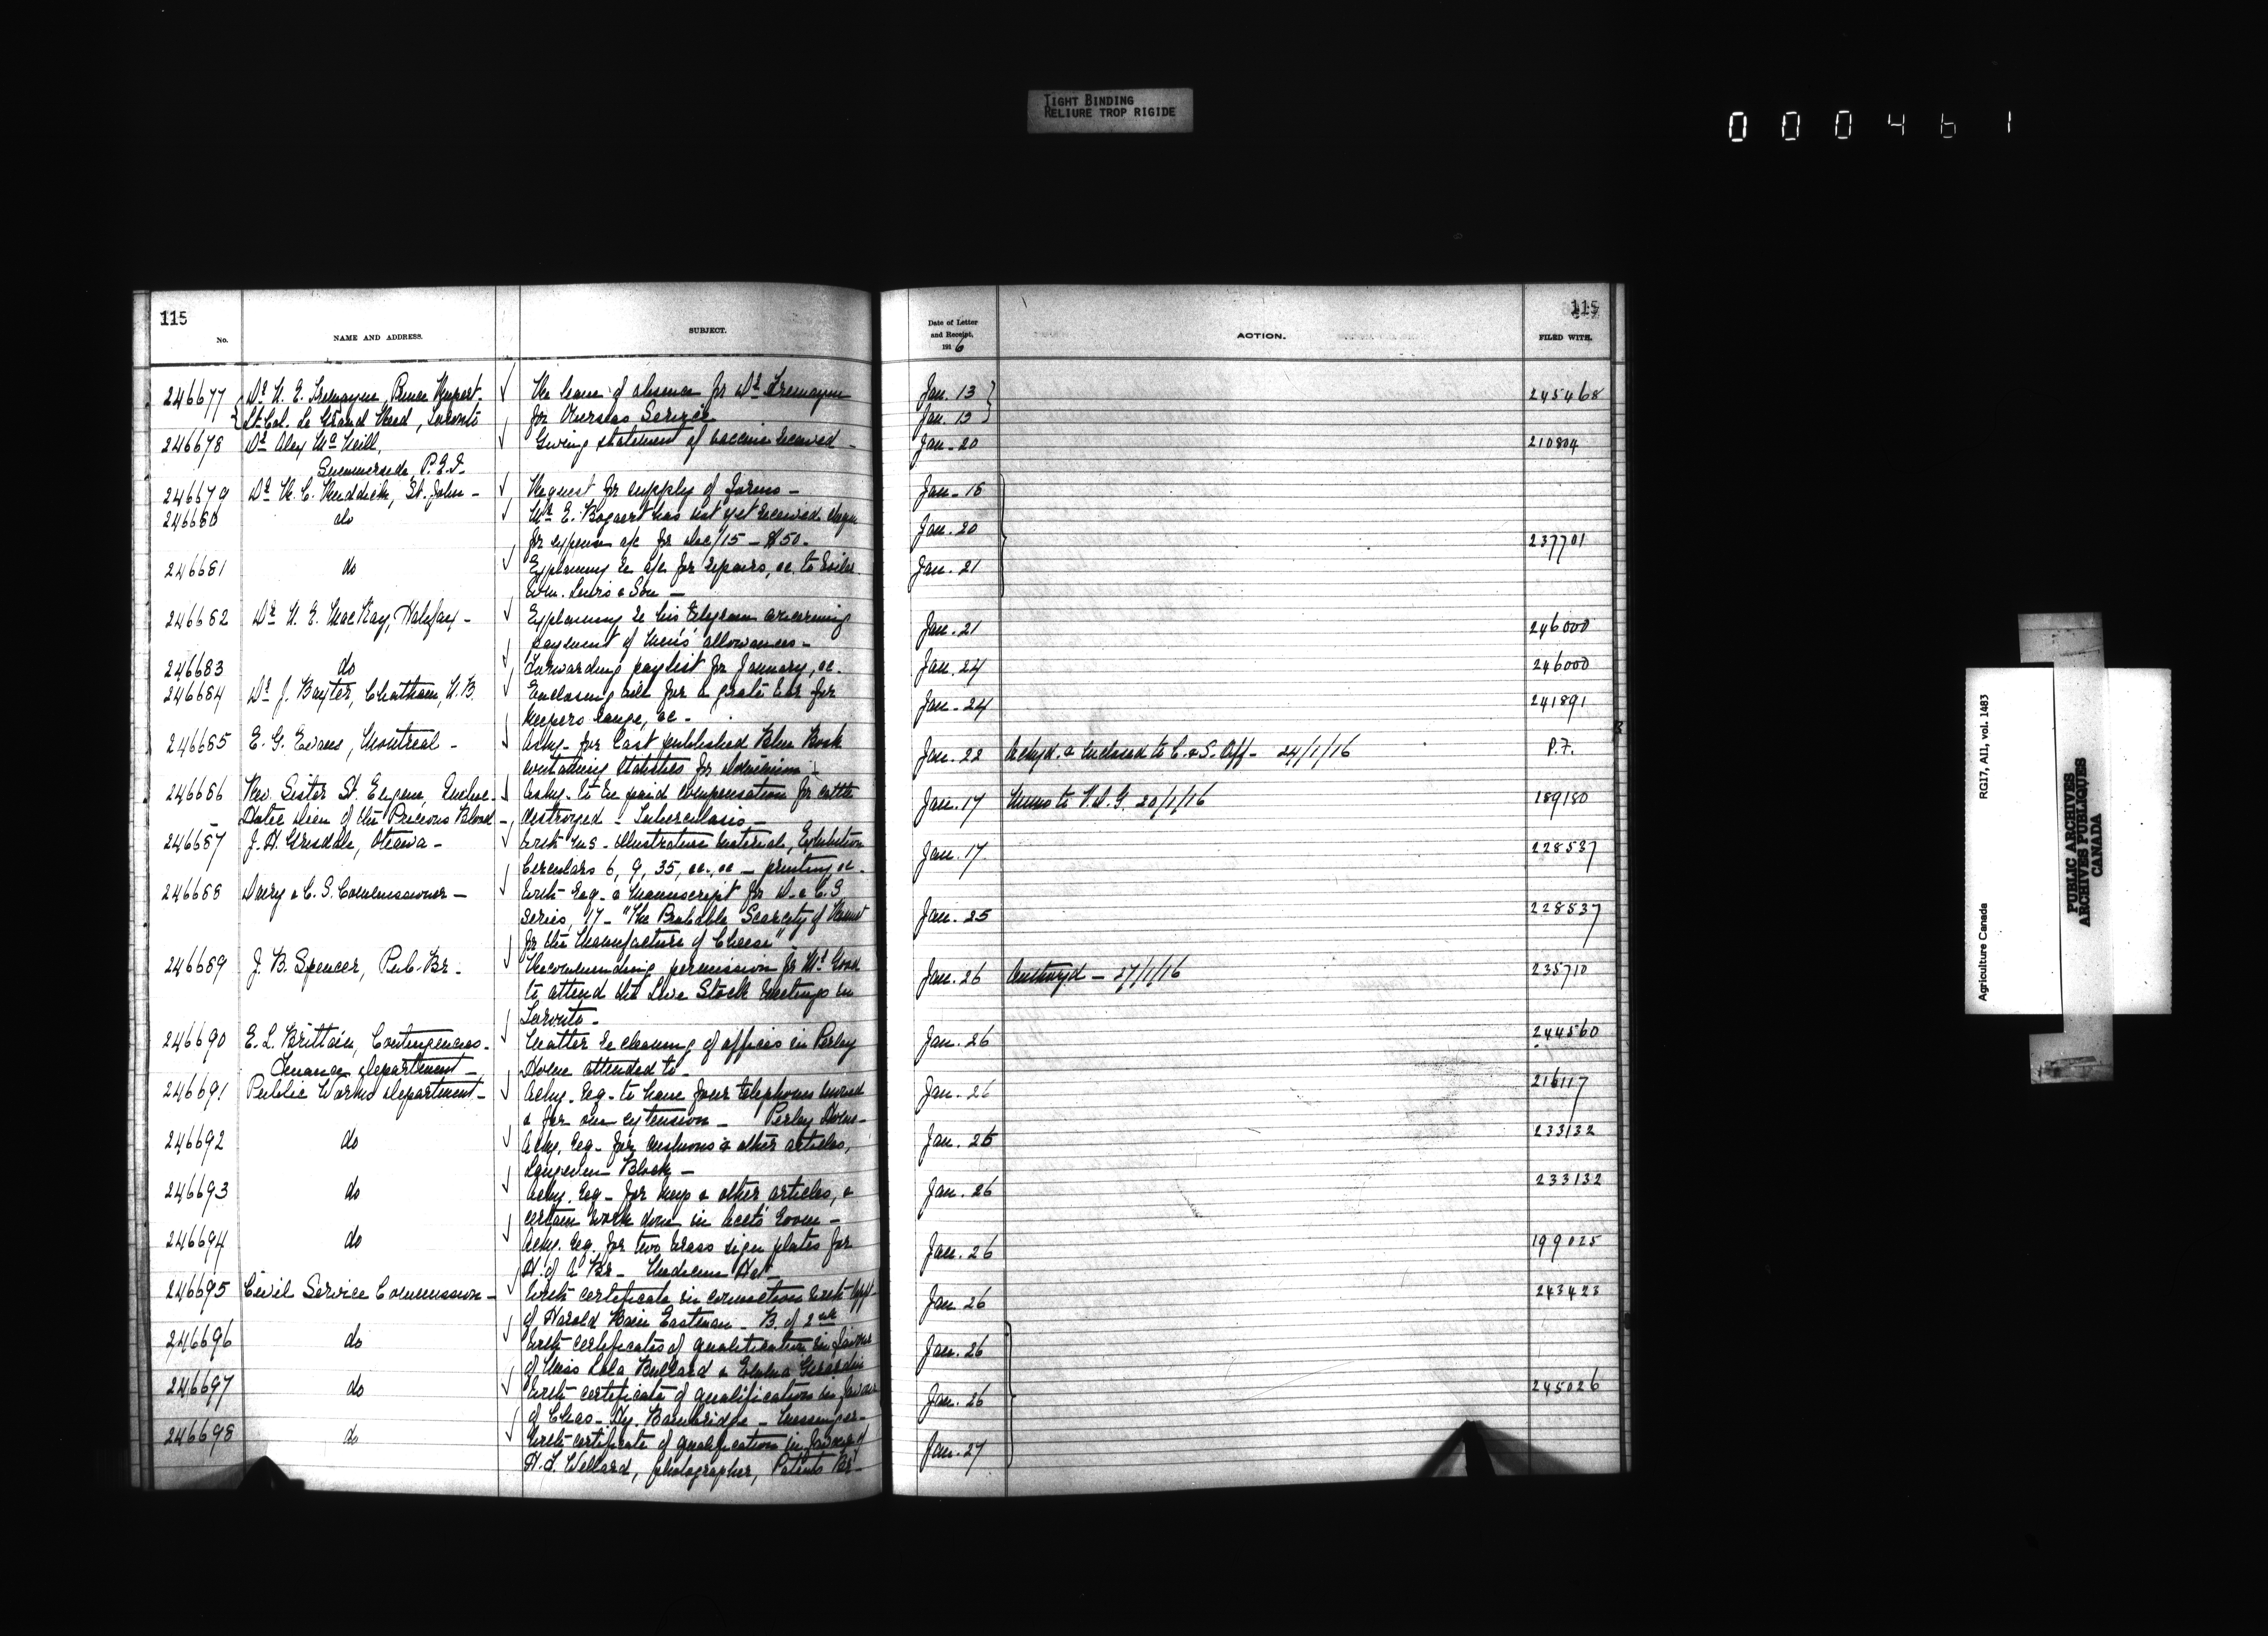 TIGHT BINDING
RELIURE TROP RIGIDE
000461
115
No.
NAME AND ADDRESS.
SUBJECT.
Date of Letter
and Receipt,
1916
ACTION.
115
FILED WITH.
246677 Dr. Tremayne, Prince Rupert. leave of absence for Dr. Tremayne Jan. 13 245468
Lt. Col. Le Grand Reed, Toronto for Overseas Service Jan. 13
246678 Dr. Alex McNeill, Giving statement of vaccine received - Jan - 20 210804
Summerside, P.E.I.
246679 Dr. St. John - Request for supply of forms - Jan - 18
246680 do Mr. E. Bogaert has not yet received cheque Jan. 20
for expense a/c for Dec/15 - $50. 237701
246681 do Explaining re a/c for repairs, &c. to boiler Jan. 21
Wm. Lewis & Son -
246682 Dr. N. E. MacKay, Halifax - Explaining re his telegram concerning Jan. 21 246000
payment of men's allowances -
246683 do Forwarding paylist for January, &c. Jan. 24 246000
246684 Dr. J. Baxter, Chatham, N.B. Enclosing bill for a grate bar for Jan - 24 241891
keepers range, &c -
246685 E. G. Evans, Montreal - Askg. for last published Blue Book Jan. 22 Ackg'd. & enclosed to C. & S. Off - 24/1/16 P.F.
containing statistics for Dominion -
246686 Rev. Sister St. Eugene, Askg. to be paid compensation for cattle Jan. 17 Memo to V.D.G. 20/1/16 189180
of the Precious Blood - destroyed - Tuberculosis -
246687 J. H. Grisdale, Ottawa - With - Illustration material, Exhibition Jan. 17 228537
Circulars 6, 9, 35, &c., &c - printing &c -
246688 Dairy & C. S. Commissioner - With req. & manuscript for D. & C. S. Jan. 25 228537
series, 17 - "The Probable Scarcity of Rennet
for the Manufacture of Cheese"
246689 J. B. Spencer, Pub. Br. Recommending permission for Mr. Jan. 26 Authorzd - 27/1/16 235710
to attend the Live Stock meetings in
Toronto -
246690 E. L. Brittain, Contingencies. Matter re cleaning of offices in Perley Jan. 26 244560
Finance Department - Home attended to -
246691 Public Works Department - Askg. req - to have four telephones moved Jan. 26 216117
& for one extension - Perley Home -
246692 do Askg. req - for cushions & other articles, Jan. 26 233132
Langevin Block -
246693 do Askg. req - for keys & other articles, & Jan. 26 233132
certain work done in Acct's room -
246694 do Askg. req. for two brass sign plates for Jan. 26 199025
H. of A. Br - Medicine Hat -
246695 Civil Service Commission - With certificate in connection with appt. Jan. 26 243423
of Harold Eastman -
246696 do With certificates of qualification in favour Jan. 26
of Miss Lola Bullard & Gerardin
246697 do With certificate of qualification in favour Jan. 26 245026
of Chas - Hy. Bambridge - Messenger -
246698 do With certificate of qualification in favour of Jan. 27
H. J. Wellard, photographer, Patents Br -
Agriculture Canada RG17, AII, vol. 1483
PUBLIC ARCHIVES
ARCHIVES PUBLIQUES
CANADA